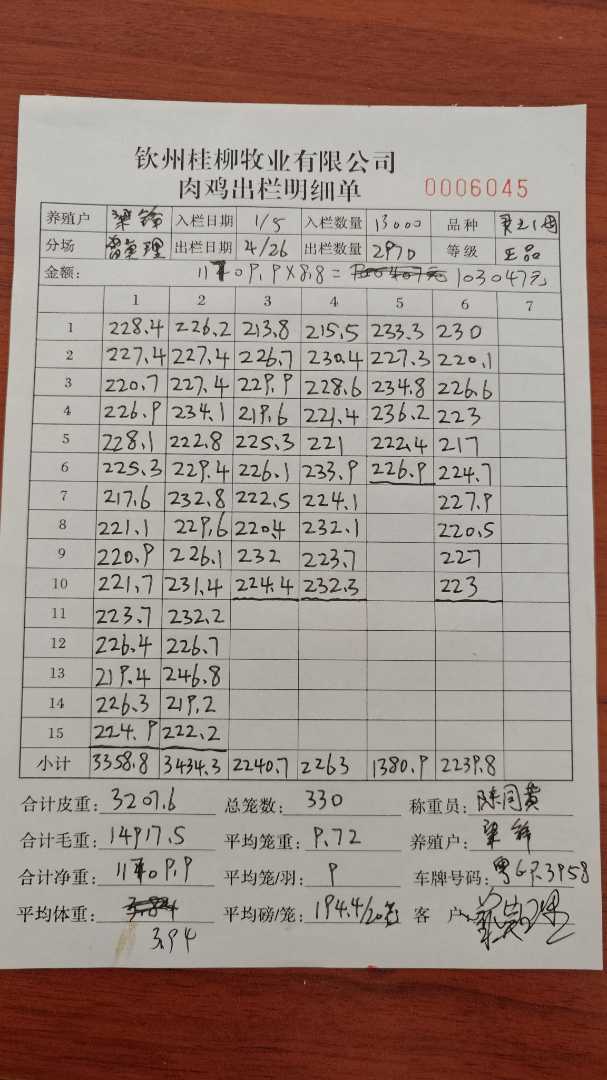 钦州桂柳牧业有限公司
肉鸡出栏明细单 0006045
养殖户 梁锋 入栏日期 1/5 入栏数量 13000 品种
分场 出栏日期 4/26 出栏数量 2970 等级 正品
金额: 11709.9×8.8= 103047元
1 2 3 4 5 6 7
1 228.4 226.2 213.8 215.5 233.3 230
2 227.4 227.4 226.7 230.4 227.3 220.1
3 220.7 227.4 229.9 228.6 234.8 226.6
4 226.9 234.1 219.6 221.4 236.2 223
5 228.1 222.8 225.3 221 222.4 217
6 225.3 229.4 226.1 233.9 226.9 224.7
7 217.6 232.8 222.5 224.1 227.9
8 221.1 229.6 220.4 232.1 220.5
9 220.9 226.1 232 223.7 227
10 221.7 231.4 224.4 232.3 223
11 223.7 232.2
12 226.4 226.7
13 219.4 246.8
14 226.3 219.2
15 224.9 222.2
小计 3358.8 3434.3 2240.7 2263 1380.9 2239.8
合计皮重: 3207.6 总笼数: 330 称重员:
合计毛重: 14917.5 平均笼重: 9.72 养殖户: 梁锋
合计净重: 11709.9 平均笼/羽: 9 车牌号码:
平均体重: 3.94 平均磅/笼: 194.4/20笼 客户: